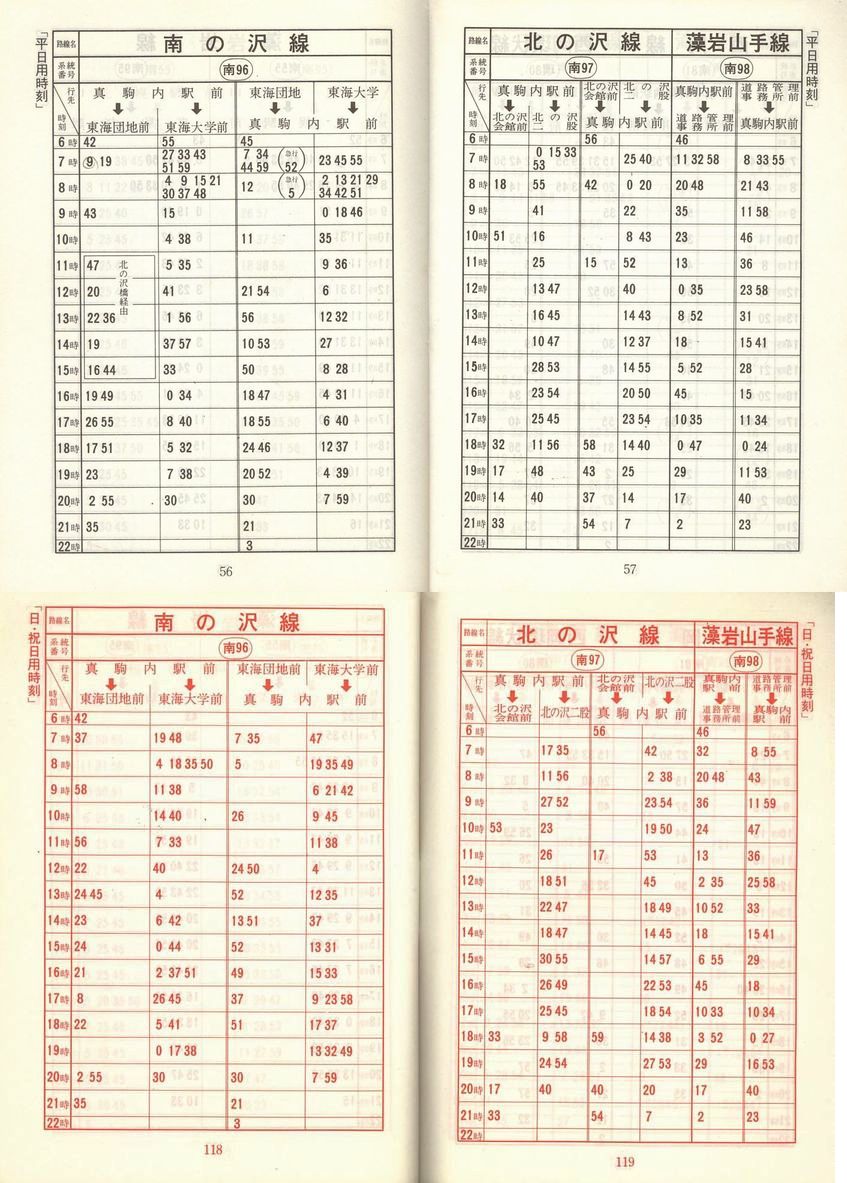 「平日用時刻」
路線名 南の沢線
系統番号 南96
行先 時刻 真駒内駅前 東海団地 東海大学
東海団地前 東海大学前 真駒内駅前
6時 42 55 45
7時 9 19 27 33 43 51 59 7 34 44 59 (急行 52) 23 45 55
8時 4 9 15 21 30 37 48 12 (急行 5) 2 13 21 29 34 42 51
9時 43 15 0 18 46
10時 4 38 11 35
11時 47 5 35 9 36
北の沢橋経由
12時 20 41 21 54 6
13時 22 36 1 56 56 12 32
14時 19 37 57 10 53 27
15時 16 44 33 50 8 28
16時 19 49 0 34 18 47 4 31
17時 26 55 8 40 18 55 6 40
18時 17 51 5 32 24 46 12 37
19時 23 7 38 20 52 4 39
20時 2 55 30 30 7 59
21時 35 21
22時 3
56
「平日用時刻」
路線名 北の沢線 藻岩山手線
系統番号 南97 南98
行先 時刻 真駒内駅前 北の沢会館前 北の沢二股 真駒内駅前 道路管理事務所前
北の沢会館前 北の沢二股 真駒内駅前 道路管理事務所前 真駒内駅前
6時 56 46
7時 0 15 33 53 25 40 11 32 58 8 33 55
8時 18 55 42 0 20 20 48 21 43
9時 41 22 35 11 58
10時 51 16 8 43 23 46
11時 25 15 52 13 36
12時 13 47 40 0 35 23 58
13時 16 45 14 43 8 52 31
14時 10 47 12 37 18 15 41
15時 28 53 14 55 5 52 28
16時 23 54 20 50 45 15
17時 25 45 23 54 10 35 11 34
18時 32 11 56 58 14 40 0 47 0 24
19時 17 48 43 25 29 11 53
20時 14 40 37 14 17 40
21時 33 54 7 2 23
22時
57
「日・祝日用時刻」
路線名 南の沢線
系統番号 南96
行先 時刻 真駒内駅前 東海団地前 東海大学前
東海団地前 東海大学前 真駒内駅前
6時 42
7時 37 19 48 7 35 47
8時 4 18 35 50 5 19 35 49
9時 58 11 38 6 21 42
10時 14 40 26 9 45
11時 56 7 33 11 38
12時 22 40 24 50 4
13時 24 45 4 52 12 35
14時 23 6 42 13 51 37
15時 24 0 44 52 13 31
16時 21 2 37 51 49 15 33
17時 8 26 45 37 9 23 58
18時 22 5 41 51 17 37
19時 0 17 38 13 32 49
20時 2 55 30 30 7 59
21時 35 21
22時 3
118
「日・祝日用時刻」
路線名 北の沢線 藻岩山手線
系統番号 南97 南98
行先 時刻 真駒内駅前 北の沢会館前 北の沢二股 真駒内駅前 道路管理事務所前
北の沢会館前 北の沢二股 真駒内駅前 道路管理事務所前 真駒内駅前
6時 56 46
7時 17 35 42 32 8 55
8時 11 56 2 38 20 48 43
9時 27 52 23 54 36 11 59
10時 53 23 19 50 24 47
11時 26 17 53 13 36
12時 18 51 45 2 35 25 58
13時 22 47 18 49 10 52 33
14時 18 47 14 45 18 15 41
15時 30 55 14 57 6 55 29
16時 26 49 22 53 45 18
17時 25 45 18 54 10 33 10 34
18時 33 9 58 59 14 38 3 52 0 27
19時 24 54 27 53 29 16 53
20時 17 40 40 20 17 40
21時 33 54 7 2 23
22時
119